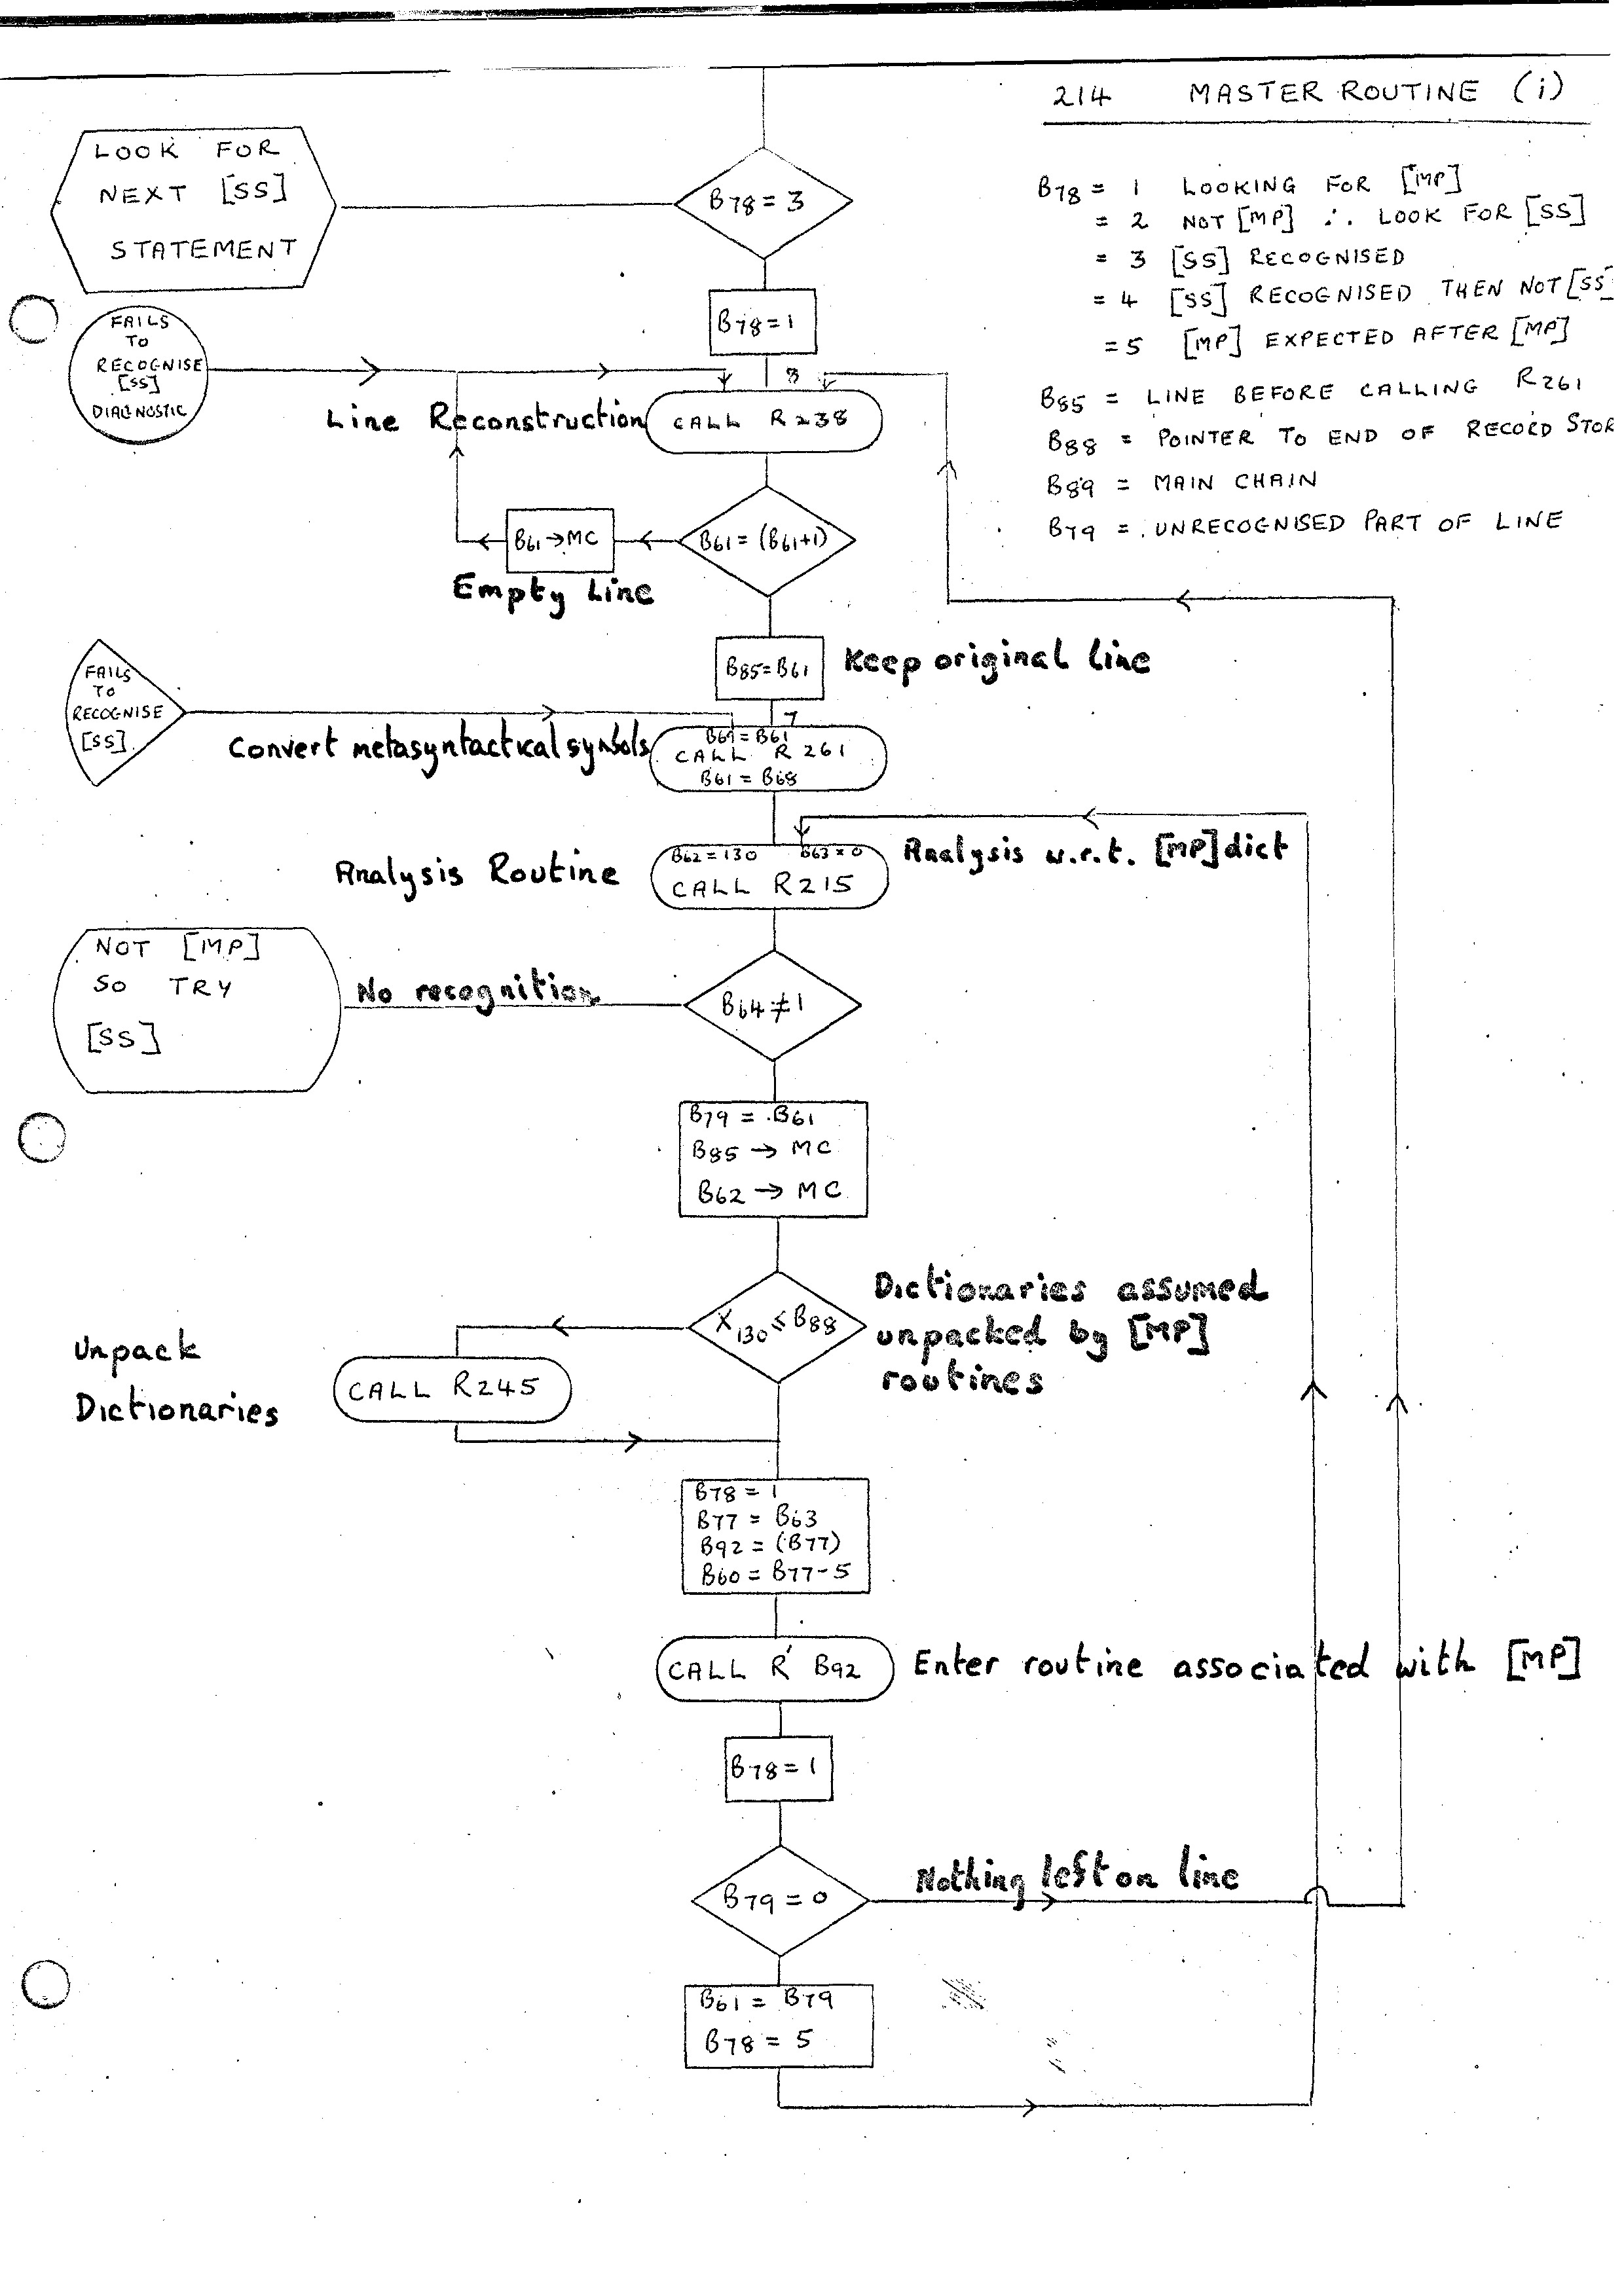 214 MASTER ROUTINE (i)
LOOK FOR
NEXT [SS]
STATEMENT
B78 = 3
B78 = 1 LOOKING FOR [MP]
= 2 NOT [MP] ∴ LOOK FOR [SS]
= 3 [SS] RECOGNISED
= 4 [SS] RECOGNISED THEN NOT [SS
= 5 [MP] EXPECTED AFTER [MP]
B85 = LINE BEFORE CALLING R261
B88 = POINTER TO END OF RECORD STOR
B89 = MAIN CHAIN
B79 = UNRECOGNISED PART OF LINE
B78=1
FAILS
TO
RECOGNISE
[SS]
DIAGNOSTIC
8
Line Reconstruction
CALL R238
B61→MC
B61=(B61+1)
Empty Line
B85=B61
Keep original line
FAILS
TO
RECOGNISE
[SS]
7
Convert metasyntactical symbols
B61
CALL R261
B61 = B68
Analysis Routine
B62=130 B63=0
CALL R215
Analysis w.r.t. [MP] dict
NOT [MP]
SO TRY
[SS]
No recognition
B64≠1
B79 = B61
B85 → MC
B62 → MC
X130 ≤ B88
Dictionaries assumed
unpacked by [MP]
routines
Unpack
Dictionaries
CALL R245
B78 = 1
B77 = B63
B92 = (B77)
B60 = B77-5
CALL R B92
Enter routine associated with [MP]
B78=1
B79=0
Nothing left on line
B61 = B79
B78 = 5